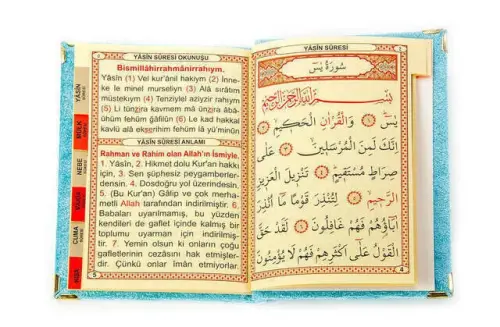 YÂSİN SÛRESİ OKUNUŞU
Bismillâhirrahmânirrahıym.
Yâsîn (1) Vel kur'ânil hakiym (2) İnne-
ke le minel murseliyn (3) Alâ sırâtim
müstekıym (4) Tenziylel aziyzir rahıym
(5) Li tünzira kavmem mâ ünzira âbâ-
ühüm fehüm gâfilûn (6) Le kad hakkal
kavlü alâ ekserihim fehüm lâ yü'minûn
YÂSİN SÛRESİ ANLAMI
Rahman ve Rahim olan Allah'ın İsmiyle.
1. Yâsîn, 2. Hikmet dolu Kur'an hakkı
için, 3. Sen şüphesiz peygamberler-
densin. 4. Dosdoğru yol üzerindesin.
5. (Bu Kur'an) Gâlip ve çok merha-
metli Allah tarafından indirilmiştir. 6.
Babaları uyarılmamış, bu yüzden
kendileri de gaflet içinde kalmış bir
toplumu uyarman için indirilmiş-
tir. 7. Yemin olsun ki onların çoğu
gafletlerinin cezasını hak etmişler-
dir. Çünkü onlar iman etmiyorlar.
5
YÂSİN
MÜLK
NEBE
CUMA
YÂSİN SÛRESİ
سُورَةُ يٰسٓ
بِسْمِ اللّٰهِ الرَّحْمٰنِ الرَّحِيمِ
يٰسٓ ﴿١﴾ وَالْقُرْاٰنِ الْحَكِيمِ ﴿٢﴾
اِنَّكَ لَمِنَ الْمُرْسَلِينَ ﴿٣﴾ عَلٰى
صِرَاطٍ مُسْتَقِيمٍ ﴿٤﴾ تَنْزِيلَ الْعَزِيزِ
الرَّحِيمِ ﴿٥﴾ لِتُنْذِرَ قَوْمًا مَٓا اُنْذِرَ
اٰبَٓاؤُهُمْ فَهُمْ غَافِلُونَ ﴿٦﴾ لَقَدْ حَقَّ
الْقَوْلُ عَلٰٓى اَكْثَرِهِمْ فَهُمْ لَا يُؤْمِنُونَ
4